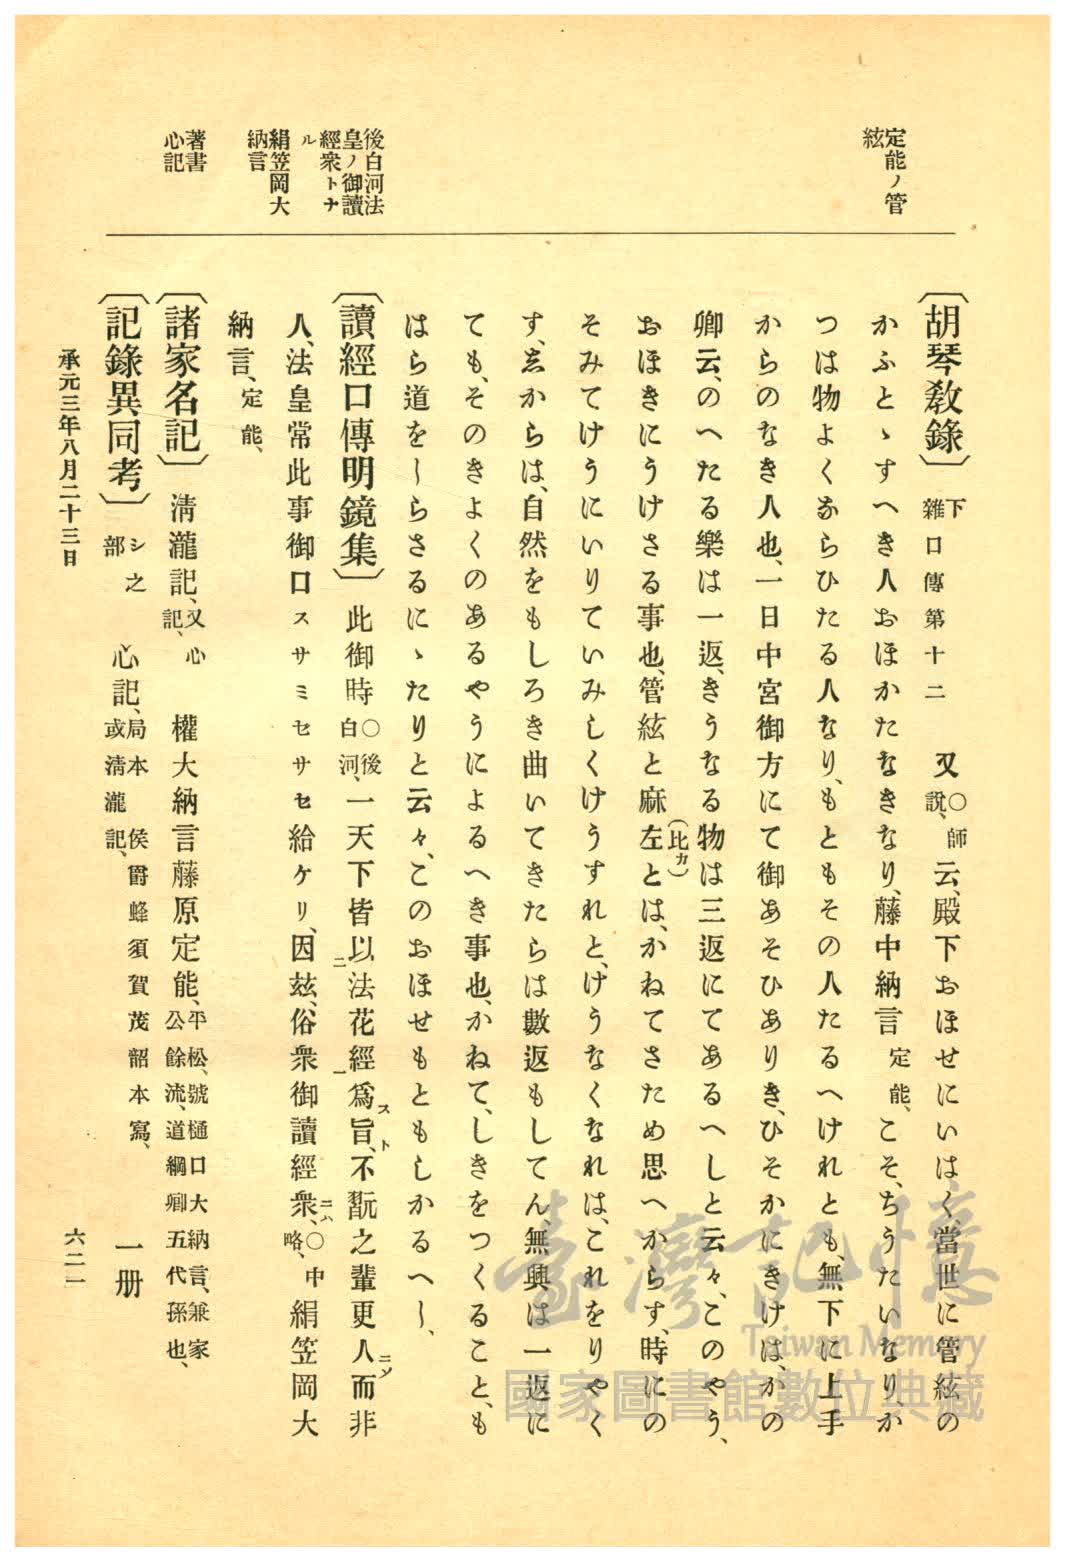 定能ノ管
絃
後白河法
皇ノ御讀
經衆トナ
ル
絹笠岡大
納言
著書
心記
〔胡琴敎錄〕下雜口傳第十二 又〇師說、云、殿下おほせにいはく、當世に管絃の
かふとゝすへき人おほかたなきなり、藤中納言定能、こそ、ちうたいなり、か
つは物よくならひたる人なり、もともその人たるへけれとも、無下に上手
からのなき人也、一日中宮御方にて御あそひありき、ひそかにきけは、かの
卿云、のへたる樂は一返、きうなる物は三返にてあるへしと云々、このやう、
おほきにうけさる事也、管絃と麻左(比カ)とは、かねてさため思へからす、時にの
そみてけうにいりていみしくけうすれと、けうなくなれは、これをりやく
す、志からは、自然をもしろき曲いてきたらは數返もしてん、無興は一返に
ても、そのきよくのあるやうによるへき事也、かねて、しきをつくること、も
はら道をしらさるにゝたりと云々、このおほせもともしかるへし、
〔讀經口傳明鏡集〕此御時〇後白河、一天下皆以二法花經一爲スト旨、不翫之輩更人ニソ而非
人、法皇常此事御口スサミセサセ給ケリ、因玆、俗衆御讀經衆ニハ、〇中略、絹笠岡大
納言、定能、
〔諸家名記〕淸瀧記、又心記、 權大納言藤原定能、平松、號樋口大納言、兼家公餘流、道綱卿五代孫也、
〔記錄異同考〕シ之部 心記、局本或淸瀧記、 侯爵蜂須賀茂韶本寫、 一册
承元三年八月二十三日
六二一
臺灣記憶
Taiwan Memory
國家圖書館數位典藏